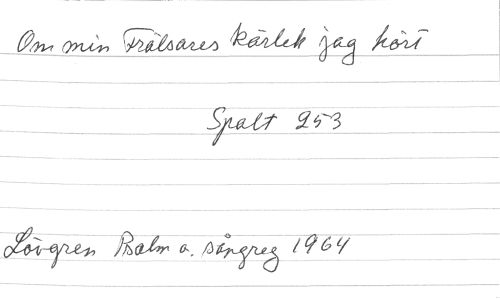 Om min Frälsares kärlek jag hört
Spalt 253
Lövgren Psalm o. sångreg 1964